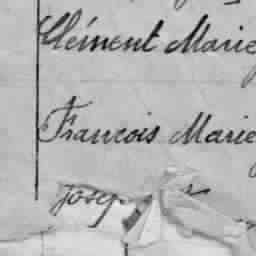 Clément Marie
François Marie